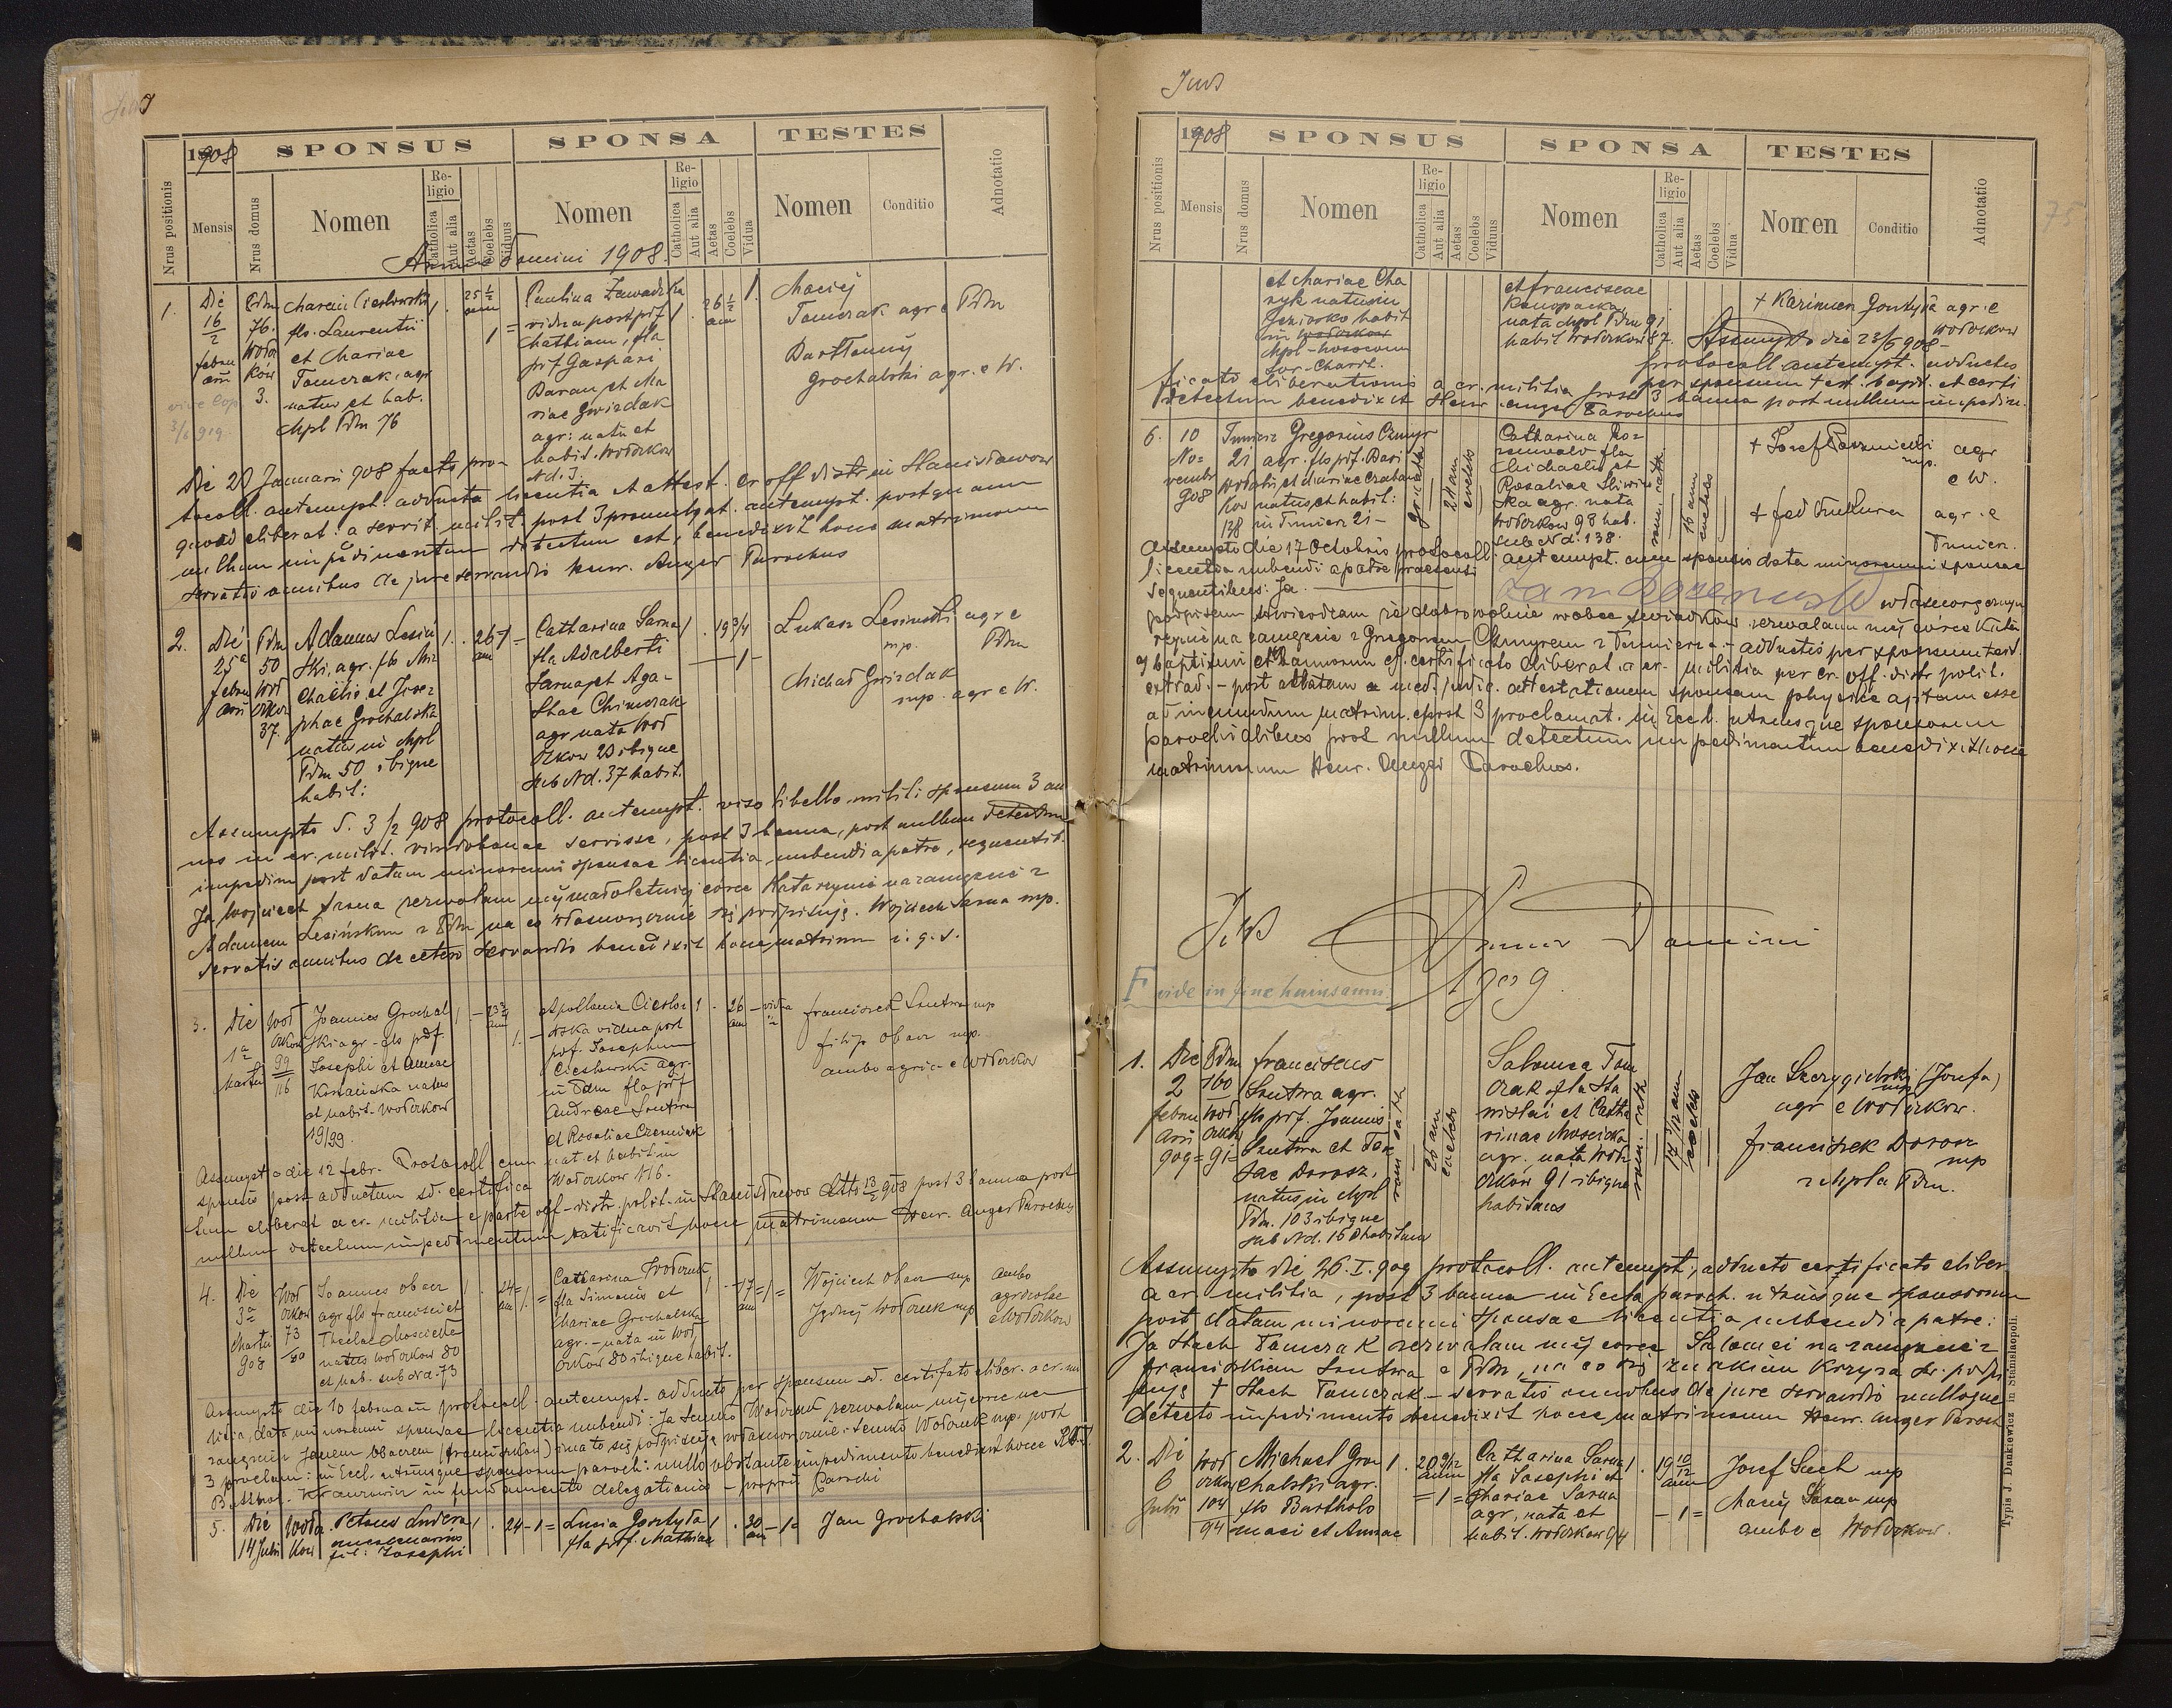 Ind
1908
SPONSUS
SPONSA
TESTES
Nrus positionis
Mensis
Nrus domus
Nomen
Religio
Catholica
Aut alia
Aetas
Coelebs
Viduus
Nomen
Religio
Catholica
Aut alia
Aetas
Coelebs
Vidua
Nomen
Conditio
Adnotatio
Anno Domini 1908.
1.
Die
16
2
febru
arii
76.
3.
Laurentii
et Mariae
Tomczak, agr
natus et hab.
Mpl Pdm 76
25 1/2
ann
Paulina Zawadzka
vidua post p.d.f
Mathiam, fla
pdf Gaspari
Baran et Ma
riae Gwizdak
agr: nata et
habit. Wołczkow
Nd. 3.
26 1/2
ann
Maciej
Tomczak agr e Pdm
Bartłomiej
Grochalski agr. e W.
Die 28 Januarii 908 facto pro-
tocoll. antempt. adducta licentia et attest. cr off distr. in Stanisławow
quoad eliberat: a servit. milit. post 3 promulgat. antempt. postquam
nullum impedimentum detectum est, benedixit hocce matrimonium
servatis omnibus de jure servandis Henr. Anger Parochus
2.
Die
25a
febru
arii
Pdm
50
Woł
czkow
37.
Adamus Lesiń
ski, agr. fls Mi
chaëlis et Jose=
phae Grochalska
natus in Mpl
Pdm 50 ibique
habit:
26
ann
Catharina Sarna
fla Adalberti
Sarna et Aga-
thae Chimczak
agr nata Woł
czkow 23 ibique
sub Nd. 37 habit.
19 3/4
Lukasz Lesinski agr e
mp. Pdm
Michał Gwizdak
mp. agr e W.
Assumpto d. 3/2 908 protocoll. antempt. viso libello milit. sponsum 3 an
nos in cr. milit. vindobonae servisse, post 3 banna, post nullum detectum
impedim post datam minorenni sponsae licentia nubendi a patre, sequentib.
Ja Wojciech Sarna zezwalam mej małoletniej córce Katarzynie na zamęzcie z
Adamem Lesińskim z Pdm na co własnoręcznie się podpisuję. Wojciech Sarna mp.
Servatis omnibus de cetero servandis benedixit hocce matrimon i. q. s.
3.
Die
1a
Martii
Woł
czkow
99
116
Joannes Grochal
ski agr - fls pdf.
Josephi et Annae
natus
et habit. Wołczkow
19/99.
23 3/4
ann
Apollonia Cieslow
ska vidua post
pdf. Josephum
Cieslowski agr.
in Pdm fla pdf
Andreae Szutwa
et Rosaliae Czerniak
nat. et habit. in
Wołczkow 116.
26
ann
vidua
Franciszek Szutwa mp
Filip Obacz mp.
ambo agric e Wołczkow
Assumpto die 12 febr. Protocoll cum
sponsis post adductum sd. certifica
tum eliberat a cr. militia e parte off. distr. polit. in Stanisławow dtto 13/2 908 post 3 banna post
nullum detectum impedimentum ratificavit hocce matrimonium Henr. Anger Parochus
4.
Die
3a
Martii
908
Woł
czkow
73
80
Joannes Obacz
agr fls Francisci et
Theclae Moscicka
natus Wołczkow 80
et hab. sub Nd. 73
24
ann
Catharina Wołczuk
fla Simonis et
Mariae Grochalska
agr. - nata in Woł
czkow 80 ibique habit.
17
ann
Wojciech Obacz mp
Jędrzej Wołczuk mp
ambo
agricolae
e Wołczkow
Assumpto die 10 februarii protocoll. antempt. adducto per sponsum sd. certificato eliber. a cr. mi
litia, data minorenni sponsae licentia nubendi: Ja Semko Wołczuk zezwalam mej córce na
zamęzcie z Janem Obaczem (Franciszkow) i na to się podpisuję własnoręcznie: Semko Wołczuk mp. post
3 proclam: in Eccl. utriusque sponsorum paroch: nullo obstante impedimento benedixit hocce
in fundamento delegationis - proprii Parochi
5.
Die
14 Julii
Wołcz
kow
Petrus
mercenarius
fil: Josephi
24
Lucia Gontyła
fla pdf. Mathiae
30
ann
Jan Grochalski
Ind
75
1908
SPONSUS
SPONSA
TESTES
Nrus positionis
Mensis
Nrus domus
Nomen
Religio
Catholica
Aut alia
Aetas
Coelebs
Viduus
Nomen
Religio
Catholica
Aut alia
Aetas
Coelebs
Vidua
Nomen
Conditio
Adnotatio
et Mariae Cha
zyk natus in
Jeziorko habit
in Wołczkow
et Franciscae
Konopacka
nata Mpl Pdm 91
habit Wołczkow 87.
+ Kazimierz Gontyła agr. e
Wołczkow
Assumpto die 23/6 908 -
protocoll antempt. adductis
per sponsum test. bapt. et certi
ficato eliberationis a cr. militia post 3 banna post nullum impedim.
detectum benedixit Henr. Anger Parochus
6.
10
No=
vembr
908
Tumierz
21
138
Gregorius Czmyr
agr. fls pdf. Basi
lii et Mariae
natus et habit:
in Tumierz 21 -
gr. cath
24 ann
coelebs
Catharina
fla
Michaelis et
Rosaliae Sliwin
ska agr. nata
Wołczkow 98 hab.
sub Nd. 138.
rom. cath.
16 ann
coelebs
mp.
agr
e W.
+ Fed Kukura
agr. e
Tumierz.
Assumpto die 17 Octobris protocoll. antempt. cum sponsis data minorenni sponsae
licentia nubendi a patre praesenti
sequentibus: Ja
własnoręcznym
podpisem stwierdzam że dobrowolnie wobec świadków zezwalam mej córce Kata
rzynie na zamęzcie z Gregorem Czmyrem z Tumierza. - adductis per sponsum test.
baptismi et bannorum et certificato eliberat. a cr. militia per cr. off. distr polit.
extrad. - post allatam a med. judic. attestationem sponsam physice aptam esse
ad ineundum matrim. et post 3 proclamat. in Eccl. utriusque sponsorum
parochialibus post nullum detectum impedimentum benedixit hocce
matrimonium Henr. Anger Parochus.
Ind Anno Domini
1909.
F vide in fine huius anni.
1.
Die
2
febru
arii
909
Pdm
160
Woł
czkow
91
Franciscus
Szutwa agr.
fls pdf. Joannis
Szutwa et Tek
lae Dorosz,
natus in Mpl
Pdm. 103 ibique
sub Nd. 160 habitans
rom. cath
26 ann
coelebs
Salomea Tom
czak fla Sta
nislai et Catha
rinae Moscicka
agr. nata Woł
czkow 91 ibique
habitans
rom. cath
17 3/12 ann
coelebs
Jan Szczygielski (Josefa)
mp
agr e Wołczkow.
Franciszek Dorosz
mp
z Mpla Pdm.
Assumpto die 26. I. 909 protocoll. antempt., adducto certificato eliber
a cr. militia, post 3 banna in Eccla paroch. utriusque sponsorum
post datam minorenni sponsae licentia nubendi a patre:
Ja Stach Tomczak zezwalam mej córce Salomei na zamęzcie z
Franciszkiem Szutwa e Pdm, na co się znakiem krzyża św. podpi
suję + Stach Tomczak - servatis omnibus de jure servandis nulloque
detecto impedimento benedixit hocce matrimonium Henr. Anger Paroch
2.
Die
6
Julii
Woł
czkow
104
94
Michael Gro
chalski agr.
fls Bartholo
maei et Annae
20 9/12
ann
Catharina Sarna
fla Josephi et
Mariae Sarna
agr, nata et
habit. Wołczkow 94
19 10/12
ann
Josef Sech mp
Maciej Sarna mp
ambo e Wołczkow.
Typis J. Dankiewicz in Stanislaopoli.